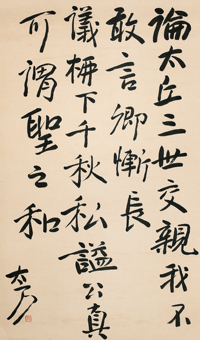 論太丘三世交親我不
敢言卿慚長
議枬下千秋私謚公真
可謂聖之和
太炎